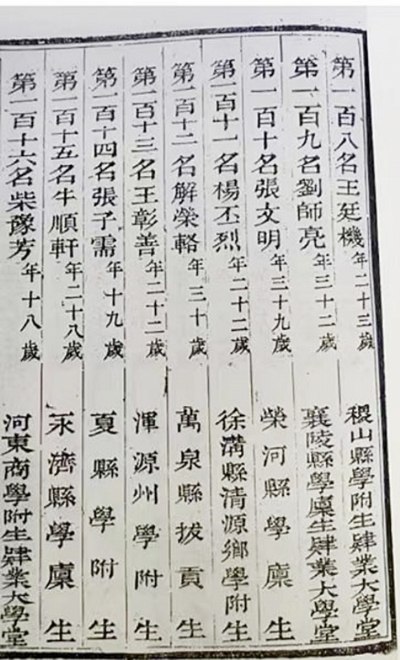 第一百八名王廷機年二十三歲 稷山縣學附生肄業大學堂
第一百九名劉師亮年三十二歲 襄陵縣學廩生肄業大學堂
第一百十名張文明年三十九歲 榮河縣學廩生
第一百十一名楊丕烈年二十二歲 徐溝縣清源鄉學附生
第一百十二名解榮輅年三十歲 萬泉縣拔貢生
第一百十三名王彰善年二十二歲 渾源州學附生
第一百十四名張子需年十九歲 夏縣學附生
第一百十五名牛順軒年二十八歲 永濟縣學廩生
第一百十六名柴豫芳年十八歲 河東商學附生肄業大學堂